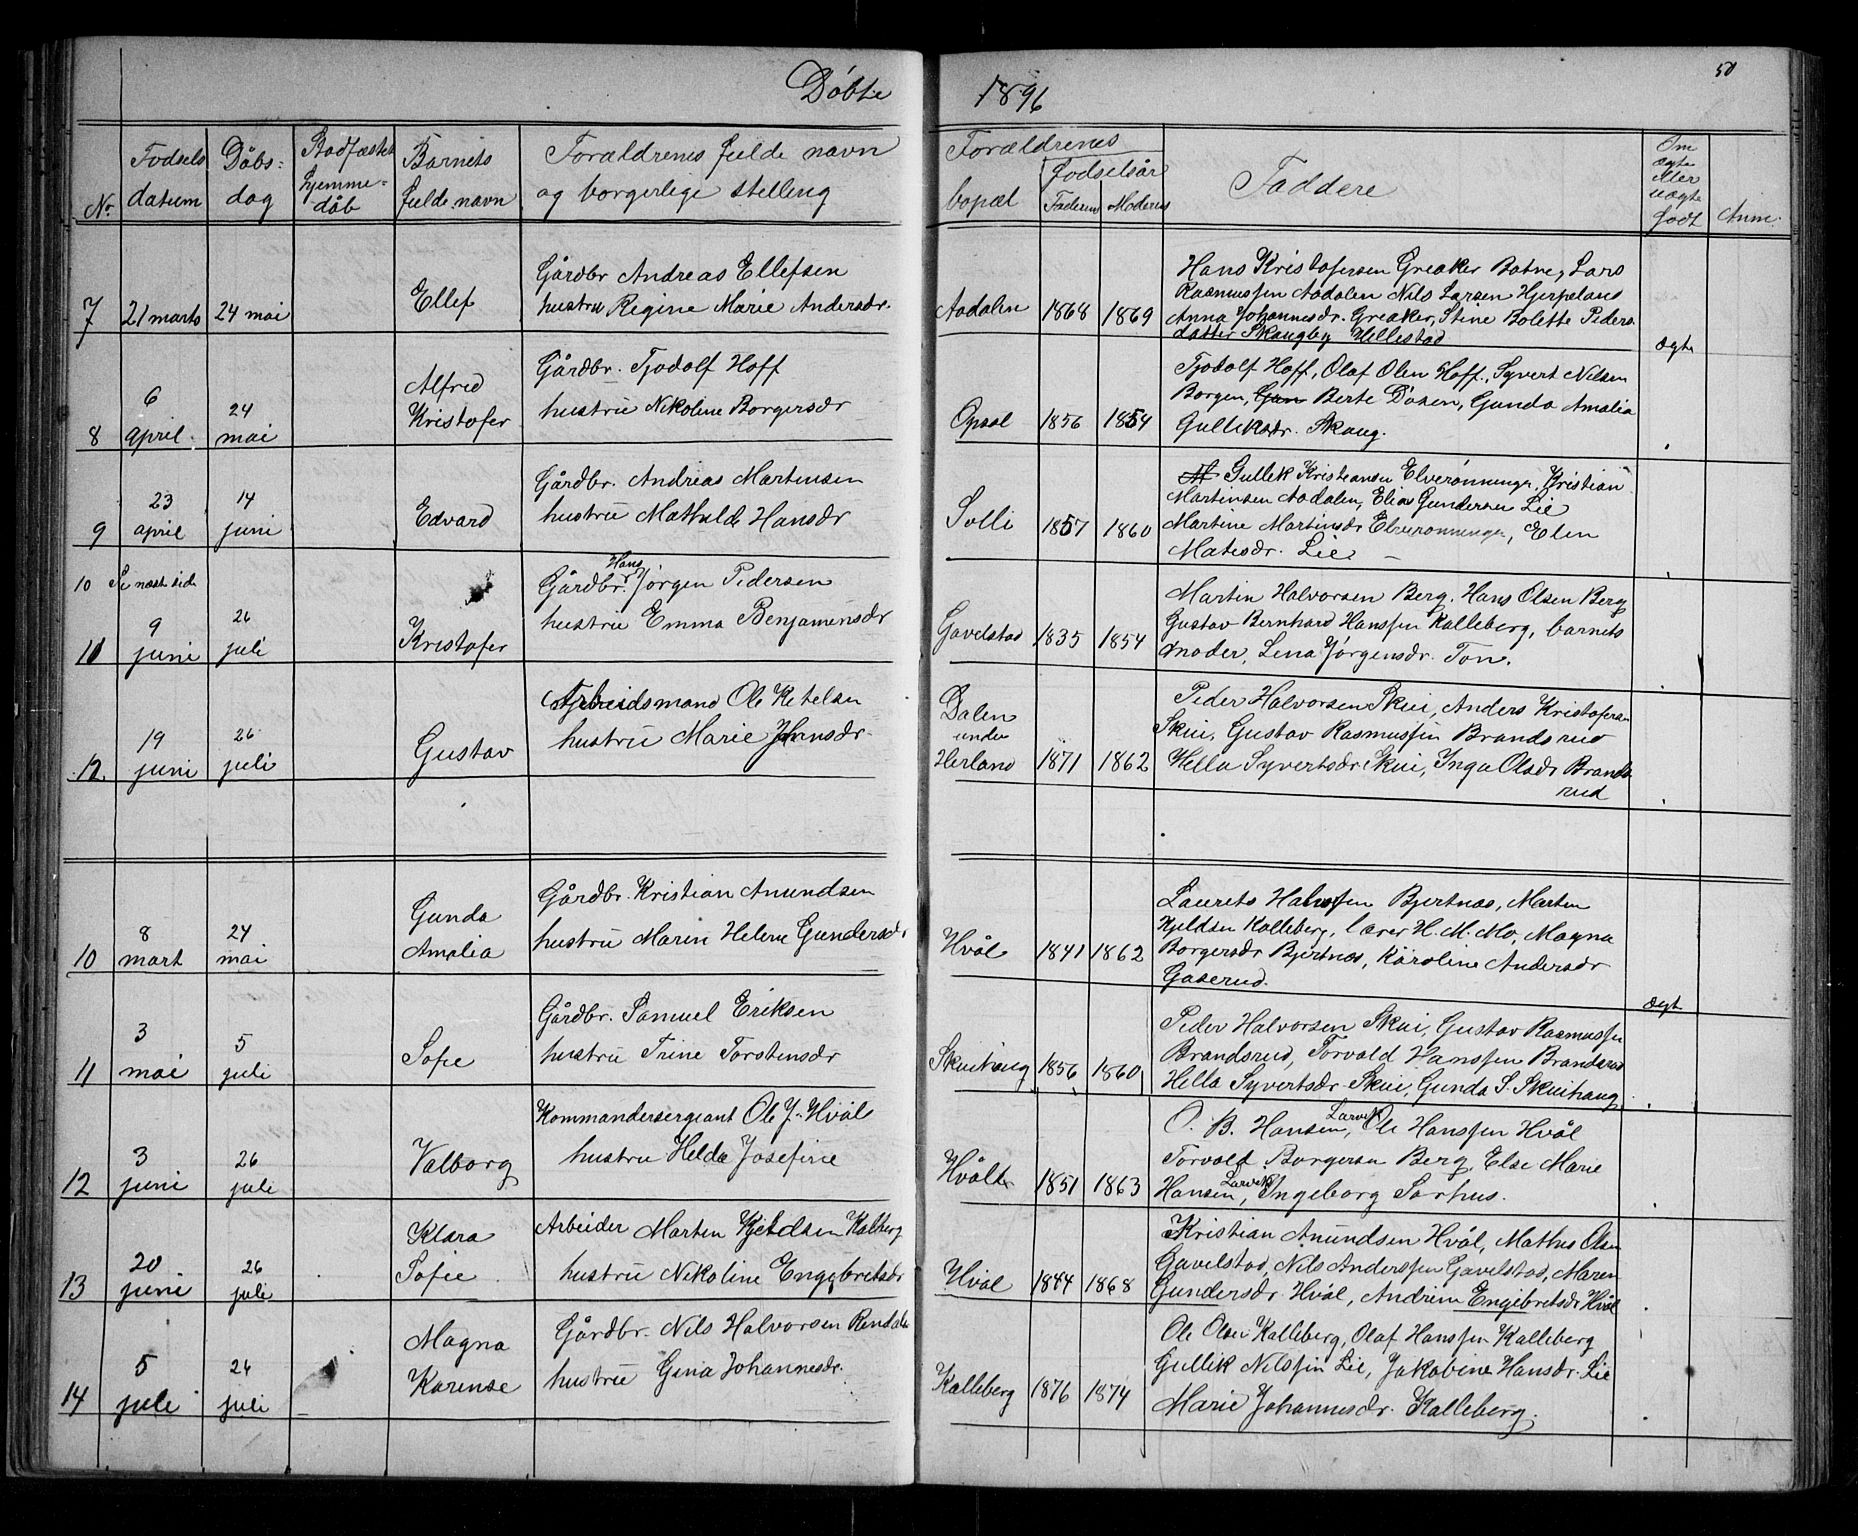 Döbte 1896
50
No
Fodsels datum
Döbs- dag
Stadfæstet hjemme- döb
Barnets fulde navn
Forældrenes fulde navn og borgerlige stilling
Forældrenes bopæl
fodselsår
Faderens
Moderens
Faddere
Om ægte eller uægte født
Anm.
7 21 marts 24 mai Ellef
Gårdbr Andreas Ellefsen
hustru Regine Marie Andersdr.
Aadalen 1868 1869
Hans Kristofersen Greaker Botne, Lars
Rasmussen Aadalen Nils Larsen Hjerpeland
Anna Johannesdr. Greaker, Stine Bolette Peders-
datter Skaugby Hillestad
ægte
8 6 april. 24 mai Alfred Kristofer
Gårdbr. Tjodolf Hoff
hustru Nikoline Borgersdr
Opsal 1856 1854
Tjodolf Hoff, Olaf Olsen Hoff, Syvert Nilsen
Borgen, Gun Berte Dösen, Gunda Amalia
Gulliksdr. Skaug.
9 23 april 14 juni Edvard
Gårdbr. Andreas Martinsen
hustru Mathilde Hansdr
Solli 1857 1860
Gullik Kristiansen Elverönningen, Kristian
Martinsen Aadalen, Elias Gundersen Lie
Martine Martinsdr Elverönningen, Elen
Matisdr. Lie
10 Se næst side
11 9 juni 26 juli Kristofer
Gårdbr. Hans Jörgen Pedersen
hustru Emma Benjaminsdr
Gavelstad 1835 1854
Martin Halvorsen Berg, Hans Olsen Berg
Gustav Bernhard Hanssen Kalleberg, barnets
moder, Lena Jörgensdr. Ton.
12. 19 juni 26 juli Gustav
Arbeidsmand Ole Ketelsen
hustru Marie Jansdr
Dalen
under
Herland 1871 1862
Peder Halvorsen Skui, Anders Kristofersen
Skui, Gustav Rasmussen Brandsrud
Hella Syvertsdr Skui, Inga Olsdr Brands
rud
10 8 mart 24 mai Gunda Amalia
Gårdbr. Kristian Anundsen
hustru Maren Helene Gundersdr
Hvål 1841 1862
Laurits Hanssen Bjertnæs, Marten
Kjeldsen Kalleberg, lærer H. M. Mo, Magna
Borgersdr Bjertnæs, Karoline Andersdr
Gaserud.
ægt
11 3 mai 5 juli Sofie
Gårdbr. Samuel Eriksen
hustru Trine Torstensdr
Skuihaug 1856 1860
Peder Halvorsen Skui, Gustav Rasmussen
Brandsrud, Torvald Hanssen Brandsrud
Hella Syvertsdr Skui, Gunda S. Skuihaug
12 3 juni 26 juli Valborg
Kommandersergeant Ole J. Hvål
hustru Helda Josefine
Hvål 1851 1863
O. B. Hansen, Larvik, Ole Hanssen Hvål
Torvald Borgersen Berg, Else Marie
Hansen, Larvik, Ingeborg Sørhus.
13 20 juni 26 juli Klara Sofie
Arbeider Marten Kjetelsen Kalberg
hustru Nikoline Engebretsdr
Hvål 1844 1868
Kristian Anundsen Hvål, Mathis Olsen
Gavelstad, Nils Anderssen Gavelstad, Maren
Gundersdr Hvål, Andrine Engebretsdr Hvål
14 5 juli 26 juli Magna Karense
Gårdbr. Nils Halvorsen Rendalen
hustru Gina Johannesdr.
Kalleberg 1876 1874
Ole Olsen Kalleberg, Olaf Hanssen Kalleberg
Gullik Nilssen Lie, Jakobine Hansdr. Lie
Marie Johannesdr. Kalleberg.